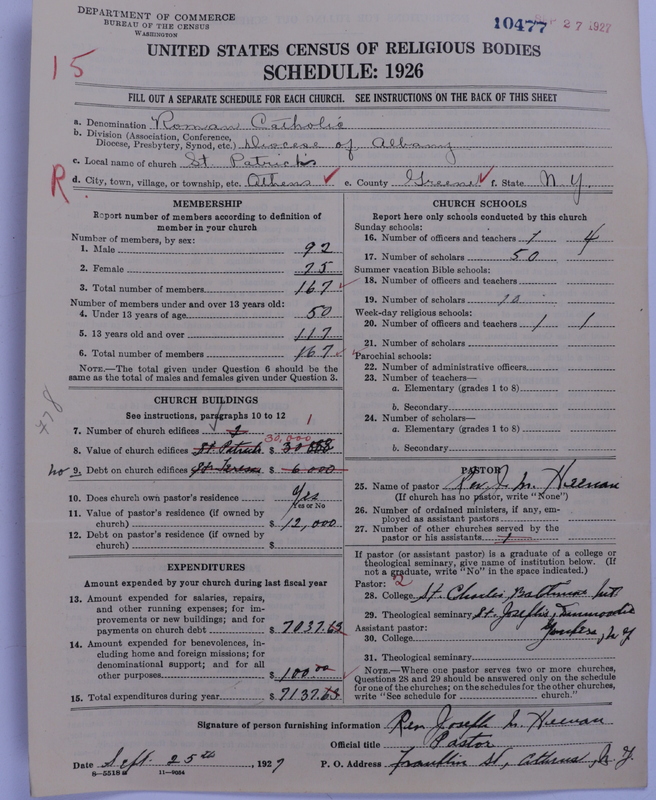 DEPARTMENT OF COMMERCE
BUREAU OF THE CENSUS
WASHINGTON
10477
27 1927
15
UNITED STATES CENSUS OF RELIGIOUS BODIES
SCHEDULE: 1926
FILL OUT A SEPARATE SCHEDULE FOR EACH CHURCH. SEE INSTRUCTIONS ON THE BACK OF THIS SHEET
a. Denomination Roman Catholic
b. Division (Association, Conference,
Diocese, Presbytery, Synod, etc.) Diocese of Albany
c. Local name of church St Patrick's
R. d. City, town, village, or township, etc. Athens e. County Greene f. State N.Y.
MEMBERSHIP
Report number of members according to definition of
member in your church
Number of members, by sex:
1. Male 92
2. Female 75
3. Total number of members 167
Number of members under and over 13 years old:
4. Under 13 years of age 50
5. 13 years old and over 117
6. Total number of members 167
NOTE.—The total given under Question 6 should be
same as the total of males and females given under Question 3.
CHURCH BUILDINGS
See instructions, paragraphs 10 to 12
478
7. Number of church edifices 2 1
30,000
8. Value of church edifices St. Patrick $
no 9. Debt on church edifices St. Teresa $ 6000
10. Does church own pastor's residence Yes
Yes or No
11. Value of pastor's residence (if owned by
church) $ 12,000
12. Debt on pastor's residence (if owned by
church) $
EXPENDITURES
Amount expended by your church during last fiscal year
13. Amount expended for salaries, repairs,
and other running expenses; for im-
provements or new buildings; and for
payments on church debt $ 7037.63
14. Amount expended for benevolences, in-
cluding home and foreign missions; for
denominational support; and for all
other purposes $ 100.00
15. Total expenditures during year $ 7137.63
CHURCH SCHOOLS
Report here only schools conducted by this church
Sunday schools:
16. Number of officers and teachers 4
17. Number of scholars 50
Summer vacation Bible schools:
18. Number of officers and teachers
19. Number of scholars
Week-day religious schools:
20. Number of officers and teachers 1 1
21. Number of scholars
Parochial schools:
22. Number of administrative officers
23. Number of teachers—
a. Elementary (grades 1 to 8)
b. Secondary
24. Number of scholars—
a. Elementary (grades 1 to 8)
b. Secondary
PASTOR
25. Name of pastor Rev. J. M. Heenan
(If church has no pastor, write "None")
26. Number of ordained ministers, if any, em-
ployed as assistant pastors
27. Number of other churches served by the
pastor or his assistants 1
If pastor (or assistant pastor) is a graduate of a college or
theological seminary, give name of institution below. (If
not a graduate, write "No" in the space indicated.)
Pastor: 2
28. College St. Charles, Baltimore Md.
29. Theological seminary St. Joseph's, Dunwoodie
Assistant pastor: Yonkers, N.Y.
30. College
31. Theological seminary
NOTE.—Where one pastor serves two or more churches,
Questions 28 and 29 should be answered only on the schedule
for one of the churches; on the schedules for the other churches,
write "See schedule for church."
Signature of person furnishing information Rev Joseph M. Heenan
Official title Pastor
Date Sept. 25th, 1927 P. O. Address Franklin St, Athens, N.Y.
8-5518a 11-9054